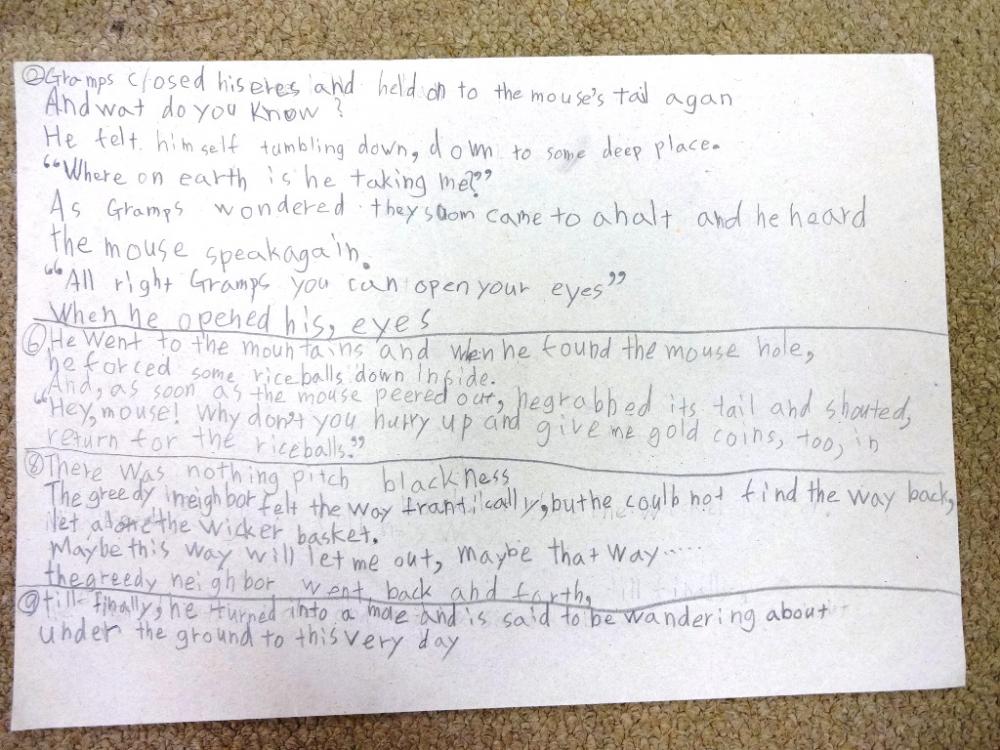 ② Gramps closed his eres and held on to the mouse's tail agan
And wat do you know?
He felt himself tumbling down, down to some deep place.
“Where on earth is he taking me?”
As Gramps wondered they soom came to ahalt and he heard
the mouse speakagain.
“All right Gramps you can open your eyes”
When he opened his, eyes
⑥ He went to the mountains and when he found the mouse hole,
he forced some riceballs down inside.
And, as soon as the mouse peered out, hegrabbed its tail and shouted,
“Hey, mouse! Why don't you hurry up and give me gold coins, too, in
return for the riceballs.”
⑧ There was nothing pitch blackness
The greedy neighbor felt the way frantically, buthe coulb not find the way back,
let alone the wicker basket.
Maybe this way will let me out, maybe that way......
thegreedy neighbor went back and forth,
⑨ till finally, he turned into a mole and is said to be wandering about
under the ground to this very day